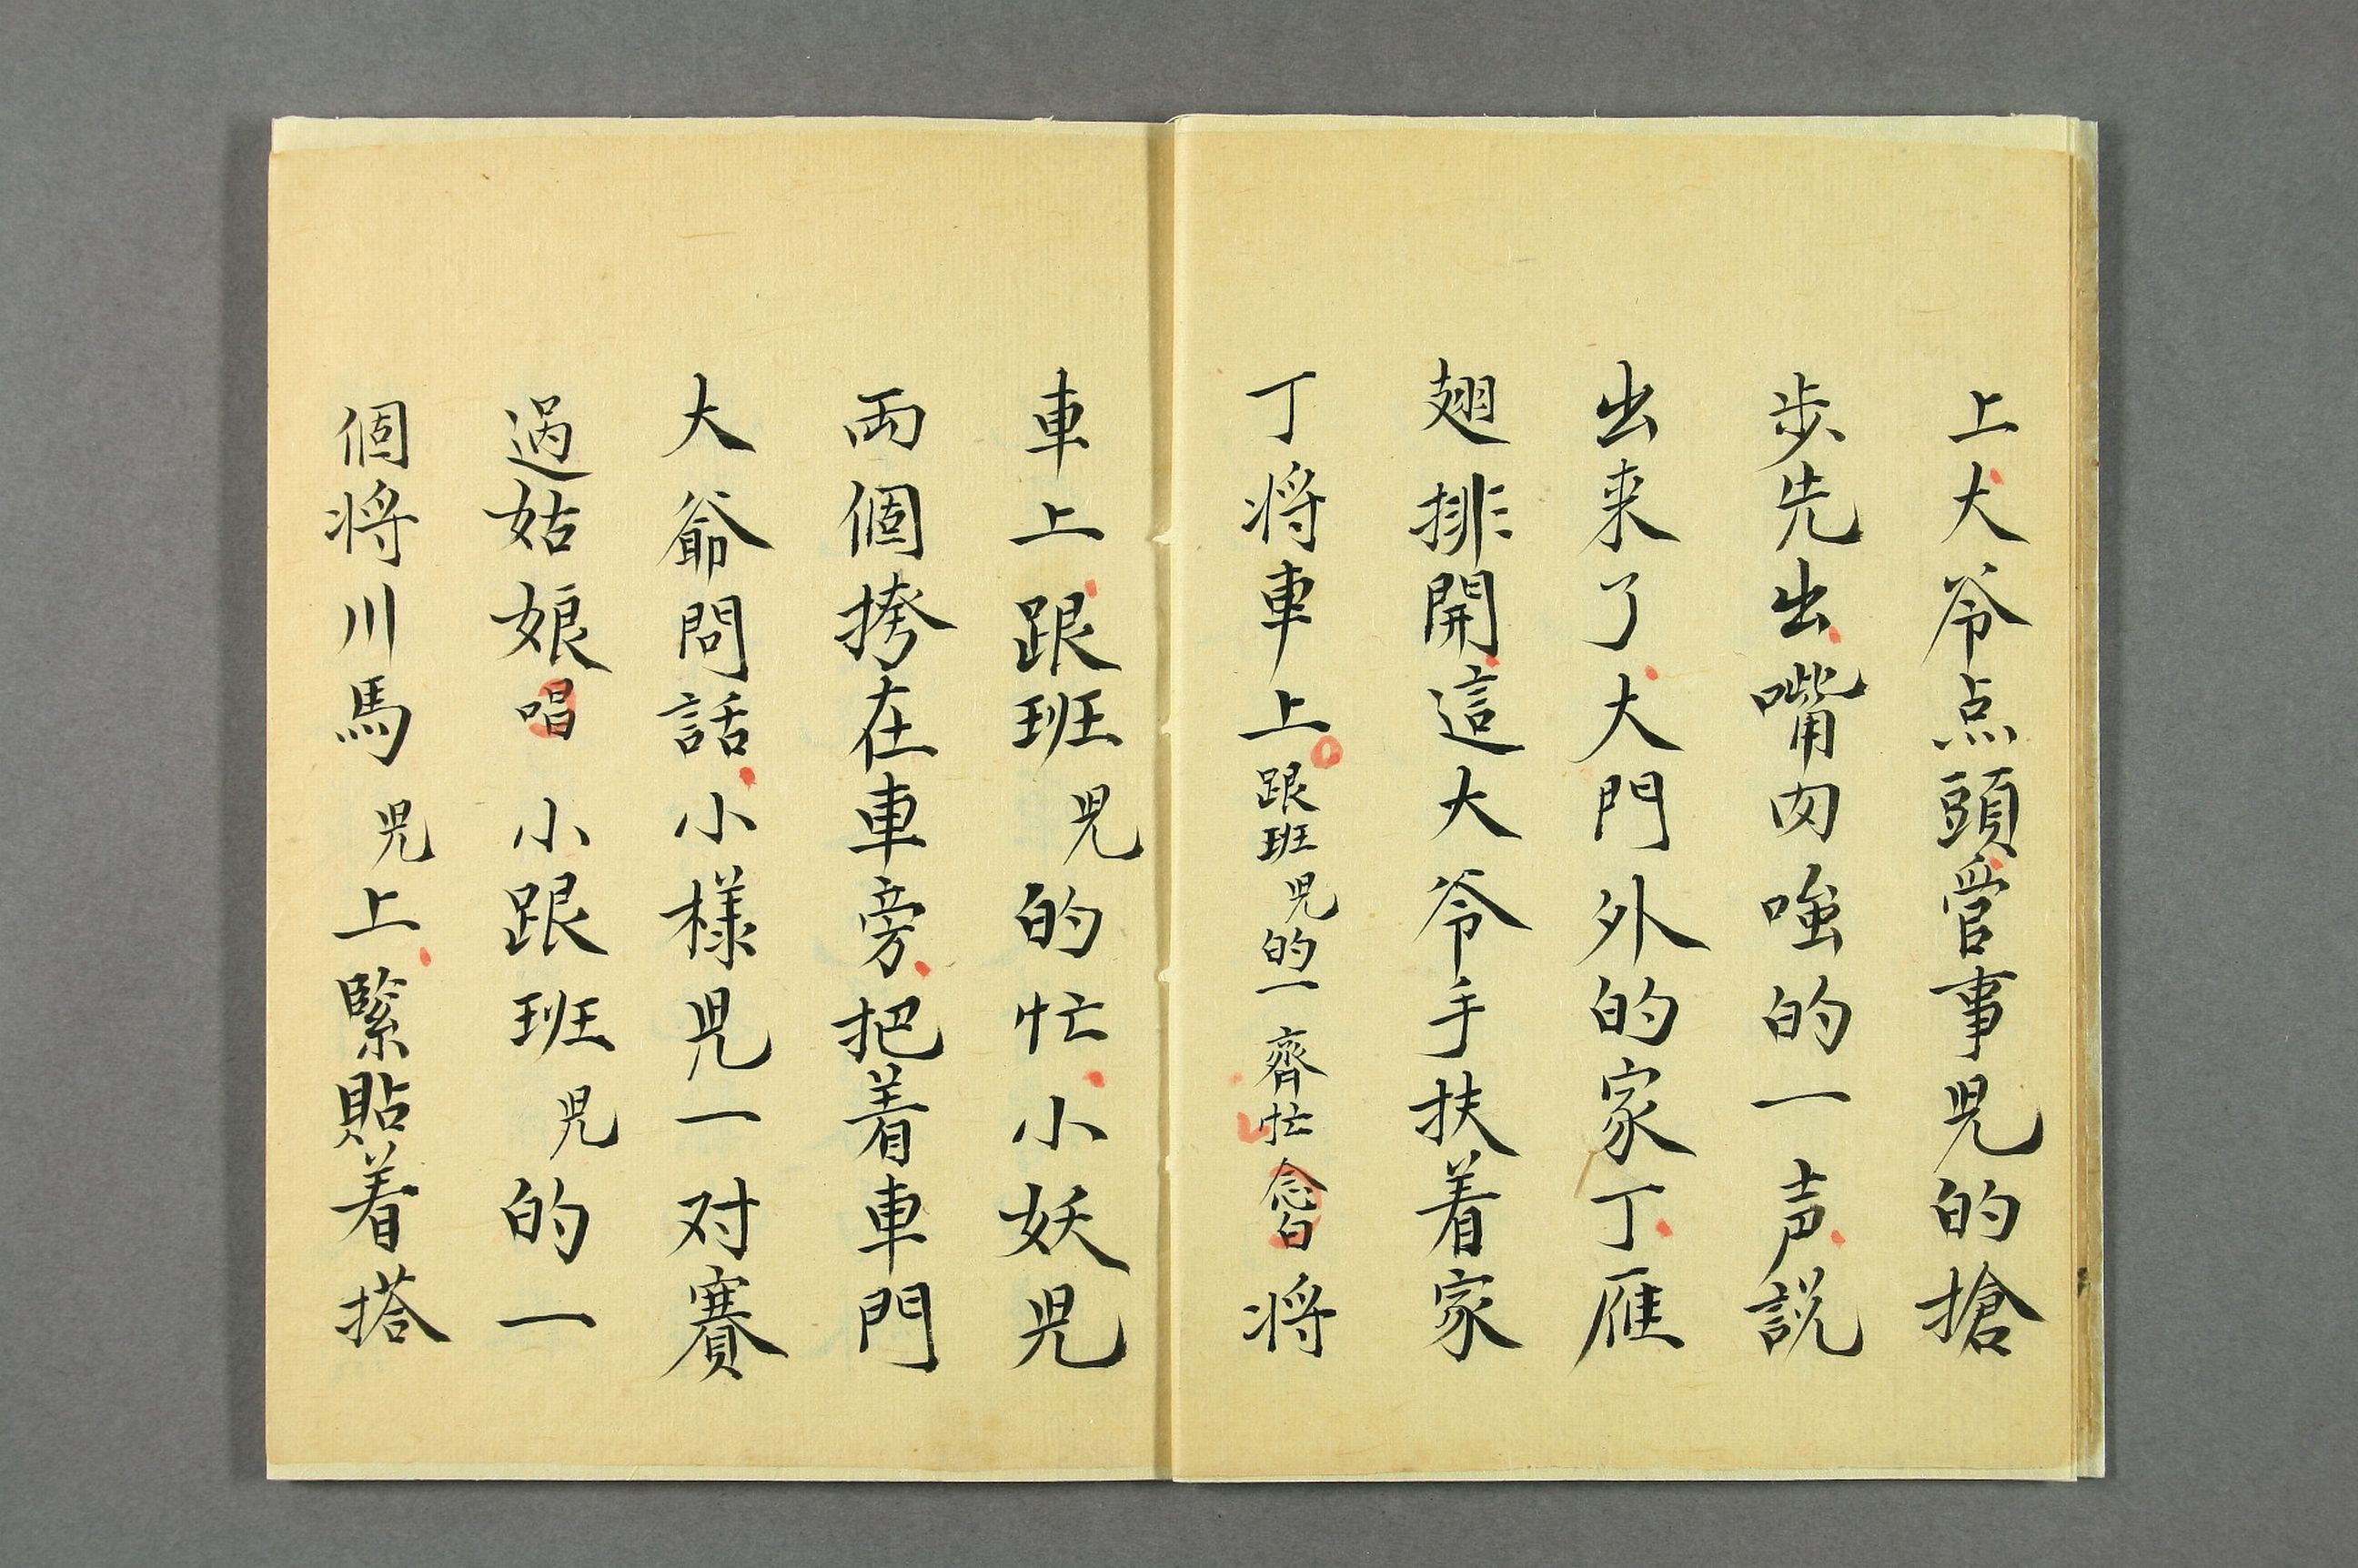 上大爷点頭管事児的搶
歩先出嘴内嗤的一声説
出来了大門外的家丁雁
翅排開這大爷手扶着家
丁将車上跟班児的一齊忙念白将
車上跟班児的忙小妖児
両個挎在車旁把着車門
大爺問話小様児一对賽
過姑娘唱小跟班児的一
個将川馬児上緊貼着搭